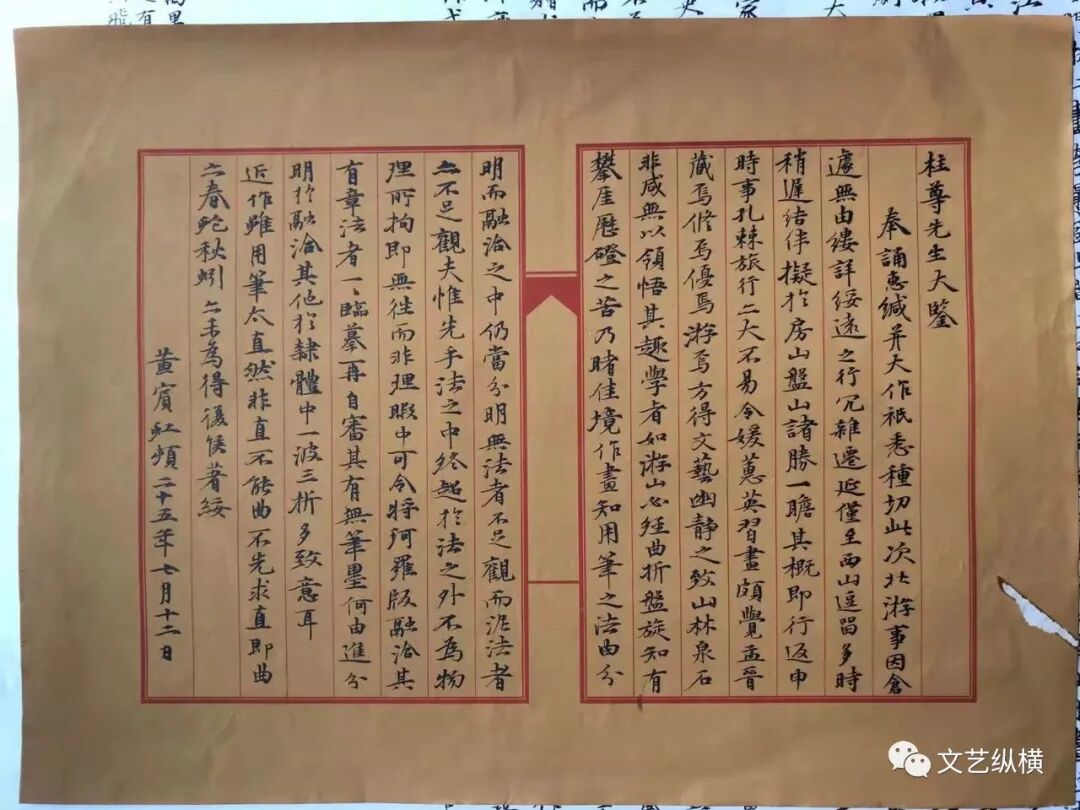 柱尊先生大鑒
奉誦惠緘并大作祇悉種切此次北游事因倉
遽無由縷詳綏遠之行冗雜遷延僅至西山逗留多時
稍遲結伴擬於房山盤山諸勝一瞻其概即行返申
時事孔棘旅行亦大不易令媛蕙英習畫頗覺孟晉
藏焉修焉優焉游焉方得文藝幽静之致山林泉石
非咸無以領悟其趣學者如游山必經曲折盤旋知有
攀厓歷磴之苦乃睹佳境作畫知用筆之法由分
明而融洽之中仍當分明無法者不足觀而泥法者
亦不足觀夫惟先乎法之中終超於法之外不為物
理所拘即無往而非理暇中可令將珂羅版融洽其
有章法者一一臨摹再自審其有無筆墨何由進分
明於融洽其他於隸體中一波三折多致意耳
近作雖用筆太直然非直不能曲不先求直即曲
亦春蛇秋蚓亦未為得復候著綏
黃賓虹頓 二十五年七月十二日
文艺纵横